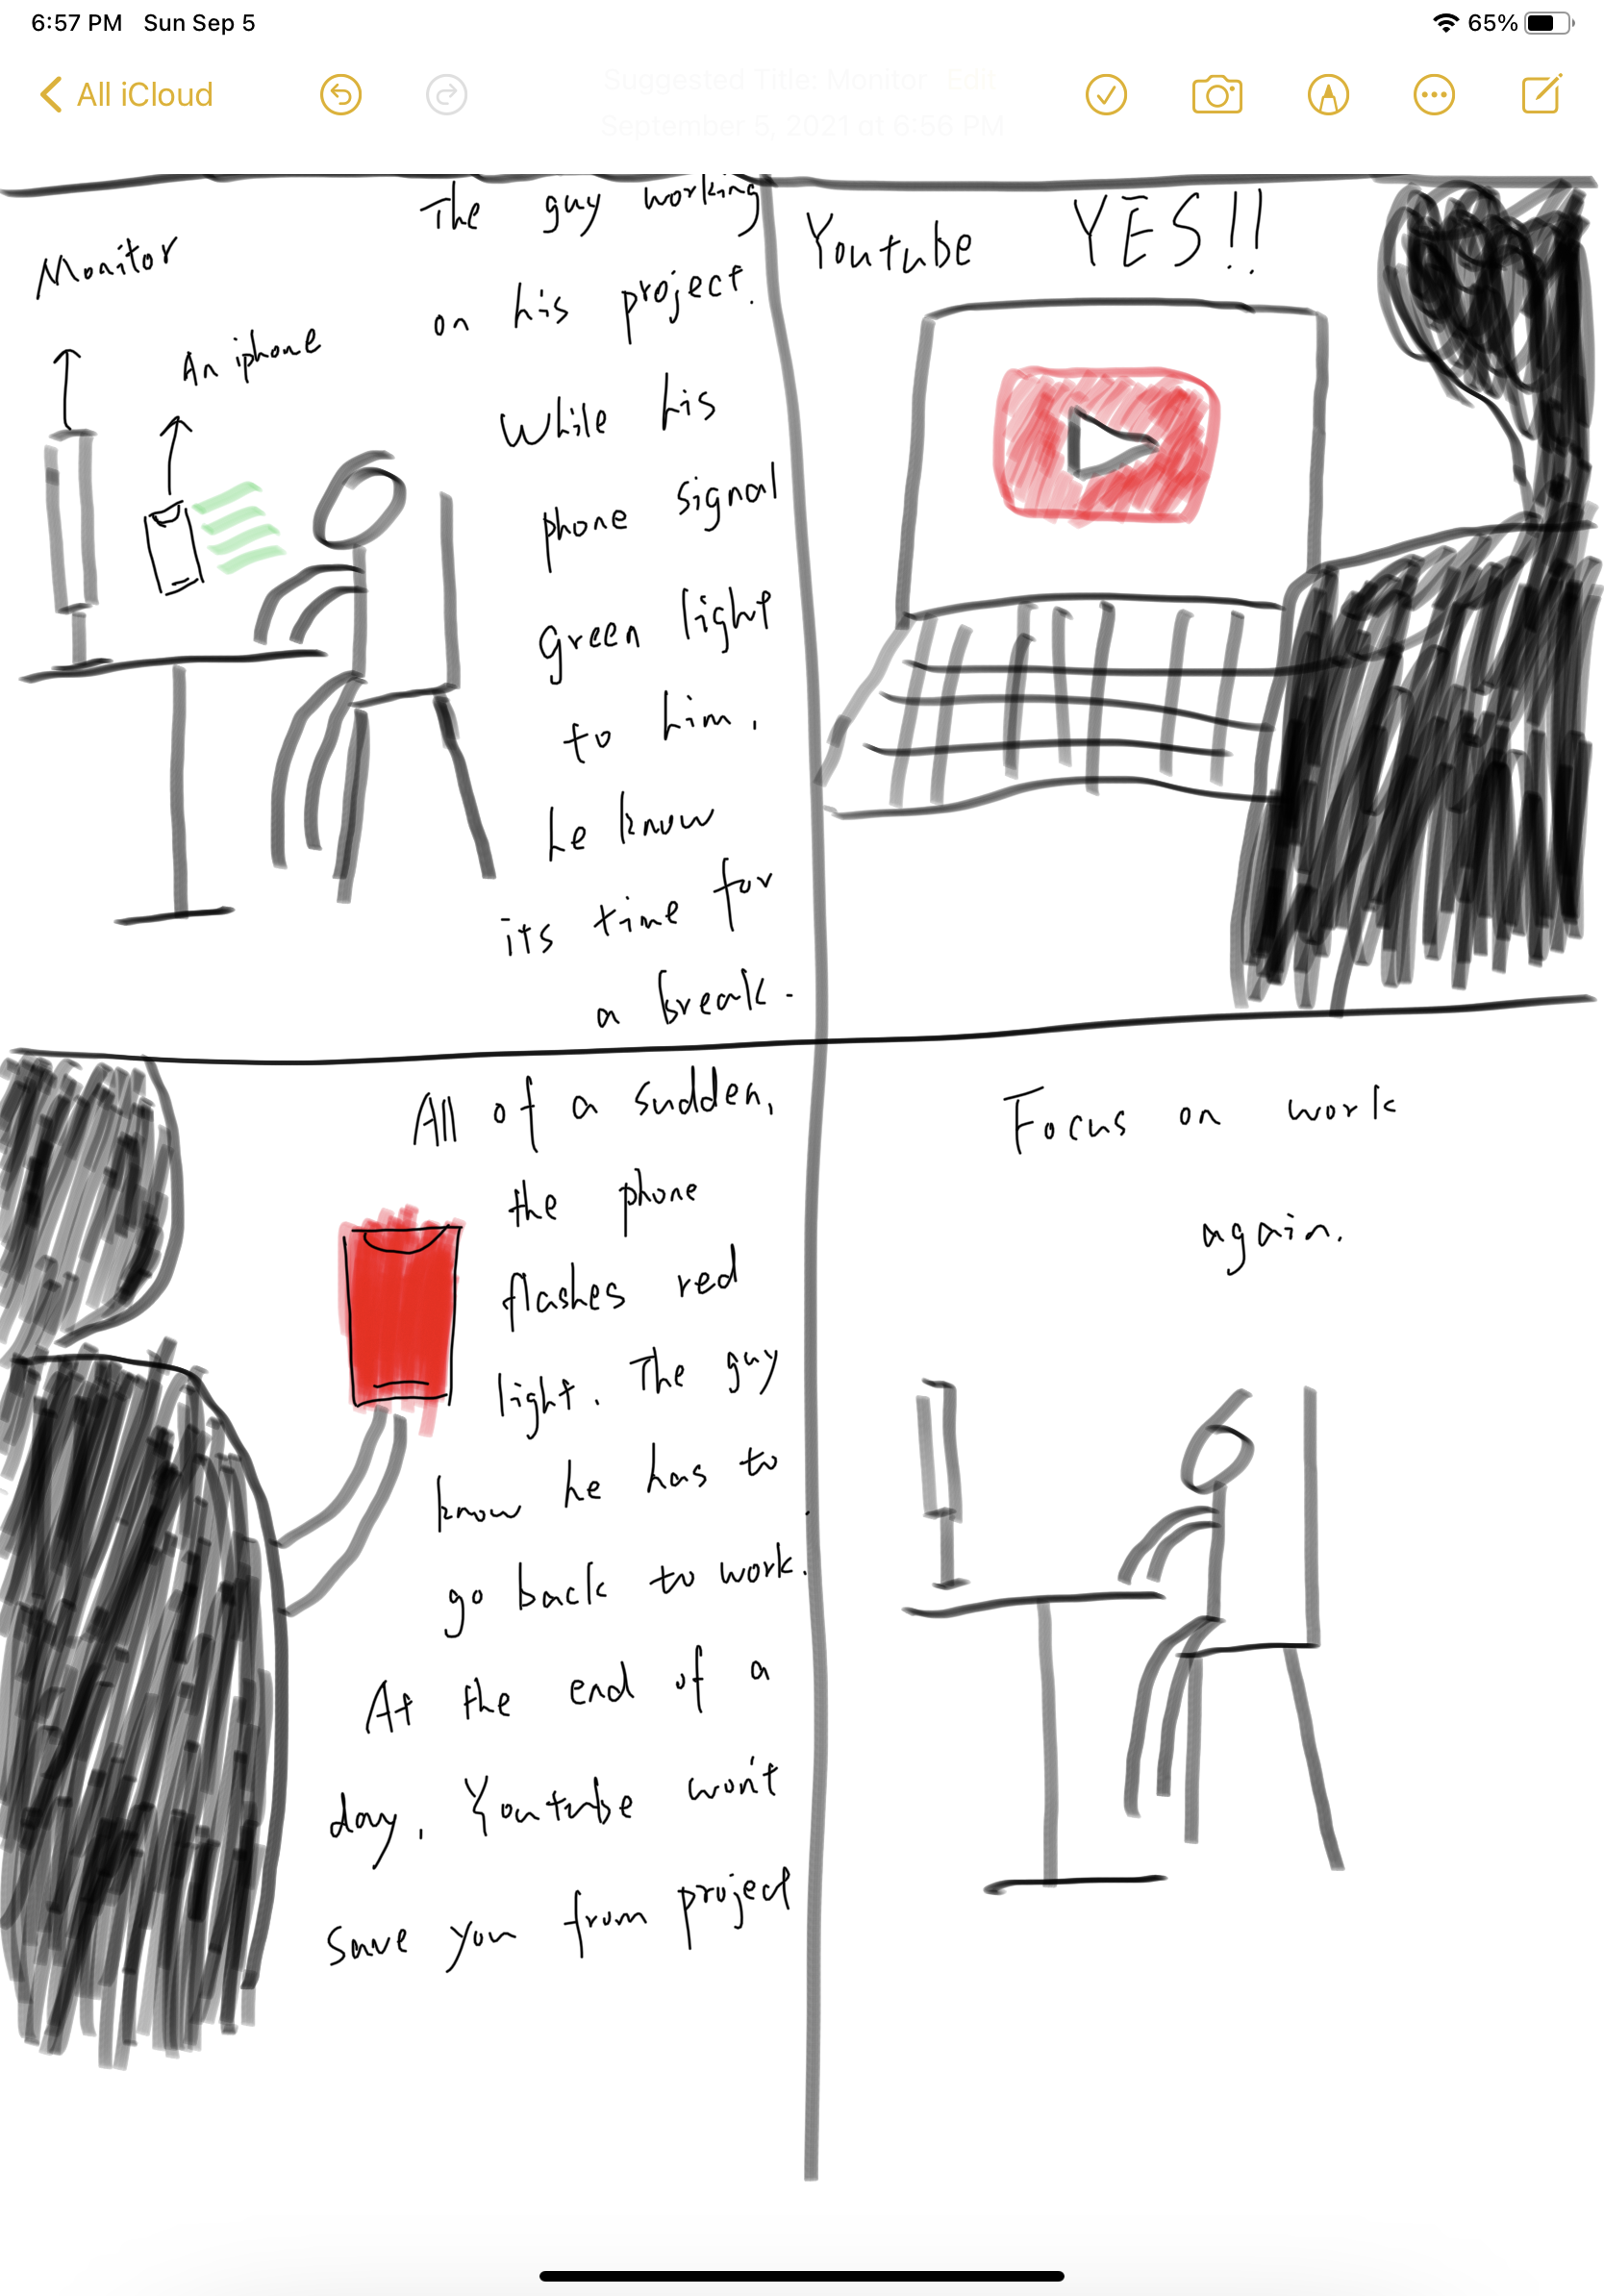 6:57 PM Sun Sep 5
65%
All iCloud
Suggested Title: Monitor Edit
September 5, 2021 at 6:56 PM
Monitor
An iphone
The guy working
on his project.
While his
phone signal
green light
to him.
he know
its time for
a break.
Youtube YES!!
All of a sudden,
the phone
flashes red
light. The guy
know he has to
go back to work.
At the end of a
day, Youtube won't
save you from project
Focus on work
again.